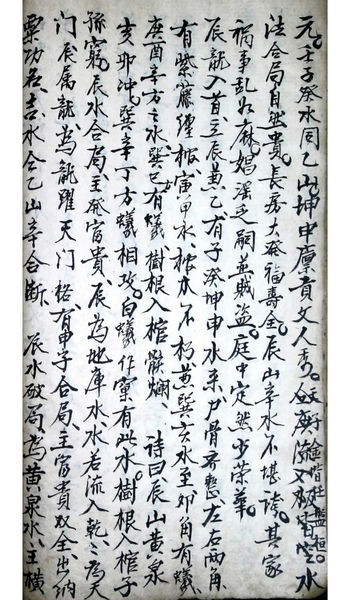 元。壬子癸水同乙山。坤申廩貴文人秀。水
法合局自然貴。長房大發福壽全。辰山辛水不堪誇。其家
禍事乱如麻。娼淫乏嗣並賊盜。庭中定然少荣華。
辰龍入首。立辰黄乙有子癸坤申水来尸骨不整。左右兩角
有紫藤纏棺。寅甲水棺木不朽黄巽方水至卯角有蟻。
庚酉辛方之水巽巳有蟻樹根入棺骸爛。 詩曰辰山黄泉
亥卯冲。巽辛丁方蟻相攻。白蟻作窠有此水。樹根入棺子
孫窮。辰水合局主發富貴。辰為地庫水。水若流入乾。乾為天
門。辰属龍。為龍躍天門格。有申子合局。主富貴双全。出納
粟功名。吉。水仝乙山辛合断。 辰水破局。為黄泉水。主横